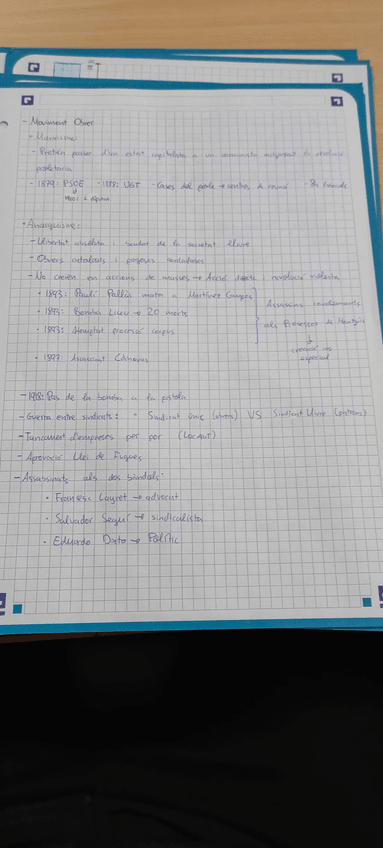 - Moviment Obrer
- Marxisme
- Pretén passar d'un estat capitalista a un comunista mitjançant la revolució
proletaria
- 1879: PSOE - 1888: UGT - Cases del poble → centres de reunió
- Anarquisme:
- Llibertat absoluta i societat lliure
- Obrers i pagesos
- No creien en accions de masses → Acció directe i revolució violenta
· 1893: Paulí Pallàs mata a Martínez Campos
· 1893: Bomba Liceu → 20 morts
· 1893: Atemptat processó corpus
· 1897 Assassinat Cánovas
als Processos de Montjuïc
- Pas de la bomba a la pistola
- Guerra entre sindicats: · Sindicat únic (obrers) VS Sindicat Lliure (patrons)
- Tancament d'empreses per por (Locaut)
- Aprovació Llei de Fugues
- Assassinats als dos bàndols:
· Francesc Layret → advocat
· Salvador Seguí → sindicalista
· Eduardo Dato → Polític